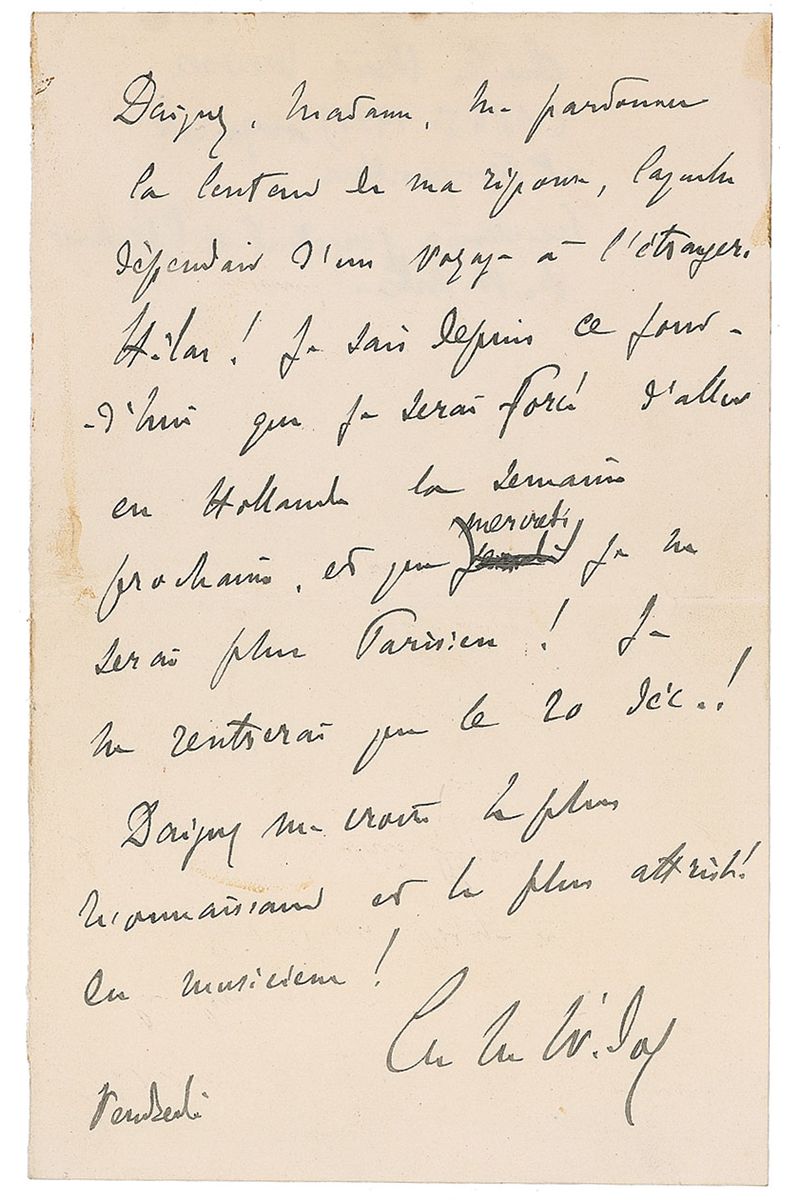 Daignez, Madame, me pardonner
la lenteur de ma réponse, laquelle
dépendait d'un voyage à l'étranger.
Hélas ! Je sais depuis ce jour-
-d'hui que je serai forcé d'aller
en Hollande la semaine
mercredi
prochaine, et que je ne
serai plus Parisien ! Je
ne rentrerai que le 20 Déc..!
Daignez me croire le plus
reconnaissant et le plus attristé
des musiciens !
Ch M Widor
Vendredi